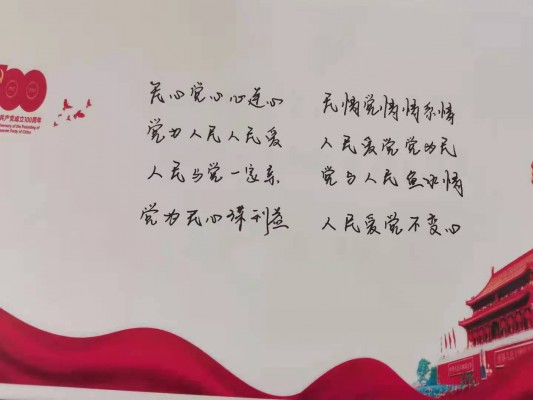 100
共产党成立100周年
民心党心心连心 民情党情情系情
党为人民人民爱 人民爱党党为民
人民与党一家亲 党与人民鱼水情
党为民心谋利益 人民爱党不变心